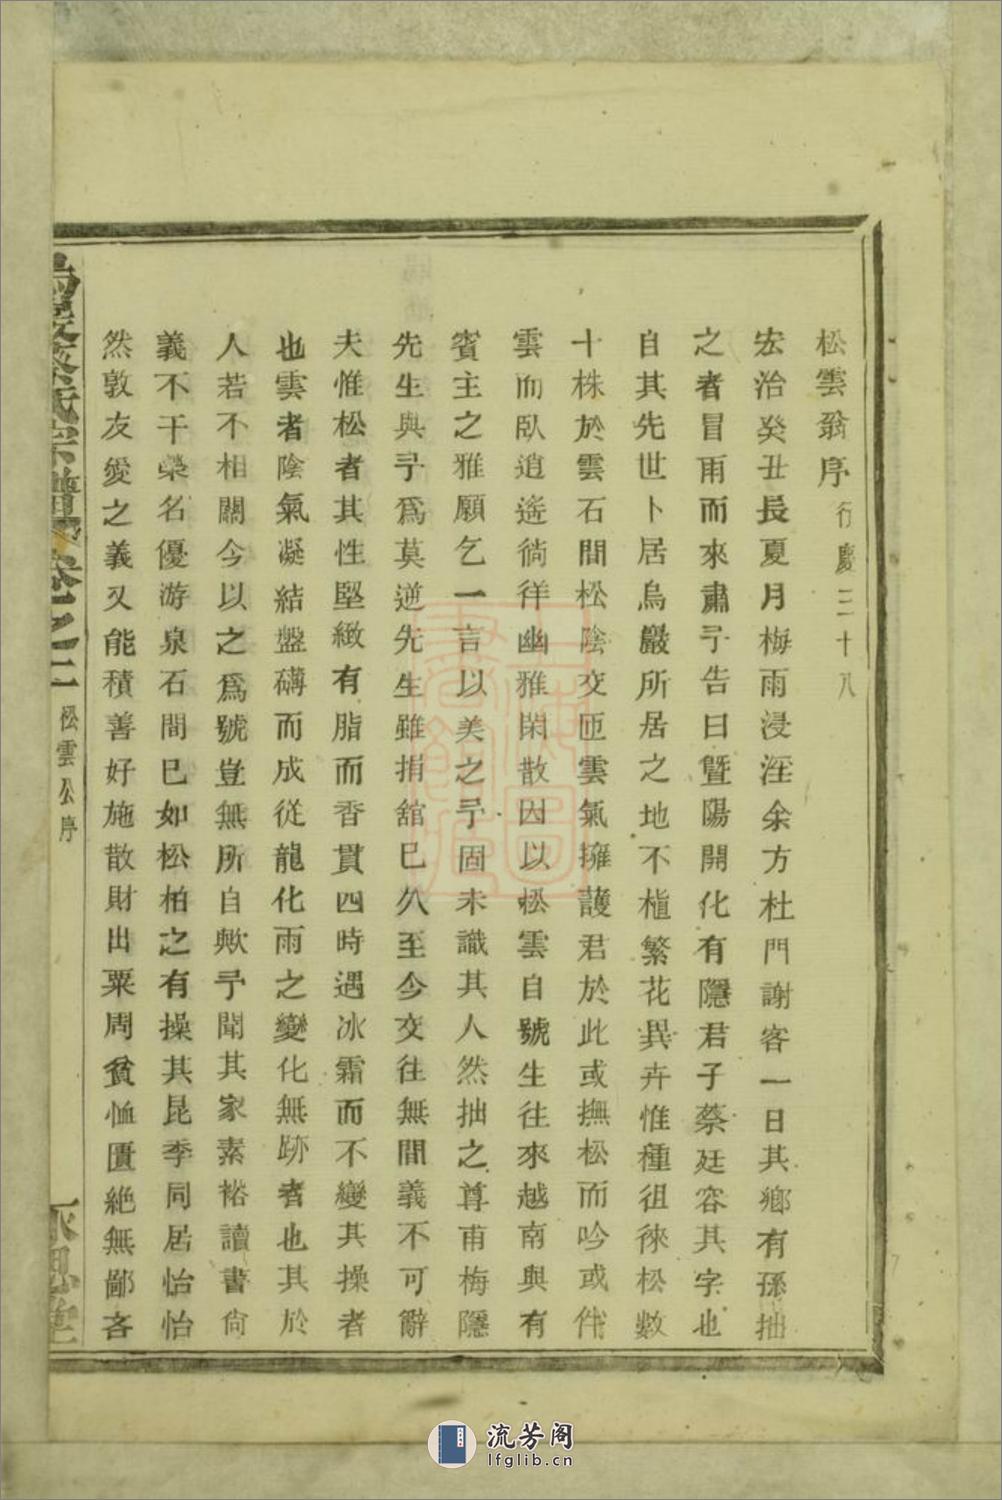 松雲翁序 行慶三十八
宏治癸丑長夏月梅雨浸淫余方杜門謝客一日其鄉有孫拙
之者冒雨而來肅予告曰暨陽開化有隱君子蔡廷容其字也
自其先世卜居烏巖所居之地不植繁花異卉惟種徂徠松數
十株於雲石間松陰交匝雲氣擁護君於此或撫松而吟或伴
雲而臥逍遙徜徉幽雅閑散因以松雲自號生往來越南與有
賓主之雅願乞一言以美之予固未識其人然拙之尊甫梅隱
先生與予爲莫逆先生雖捐舘已久至今交往無間義不可辭
夫惟松者其性堅緻有脂而香貫四時遇冰霜而不變其操者
也雲者陰氣凝結盤礴而成從龍化雨之變化無跡者也其於
人若不相關今以之爲號豈無所自歟予聞其家素裕讀書尙
義不干榮名優游泉石間已如松柏之有操其昆季同居怡怡
然敦友愛之義又能積善好施散財出粟周貧恤匱絶無鄙吝
蔡氏宗譜卷之二 松雲公序
永思堂
流芳阁
lfglib.cn